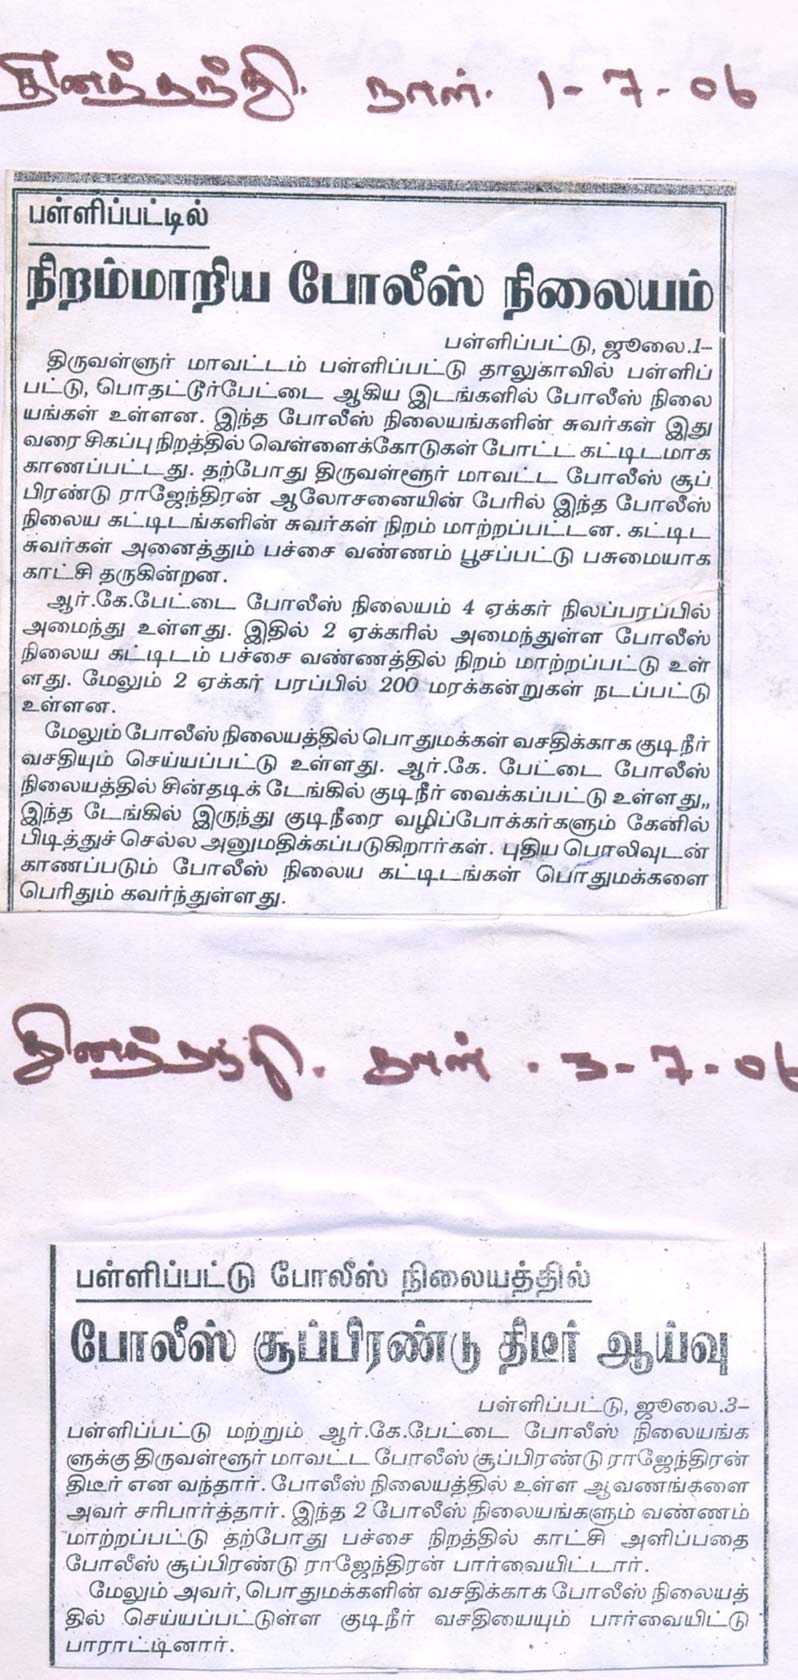 தினத்தந்தி. நாள். 1-7-06
பள்ளிப்பட்டில்
நிறம்மாறிய போலீஸ் நிலையம்
பள்ளிப்பட்டு, ஜூலை.1–
திருவள்ளுர் மாவட்டம் பள்ளிப்பட்டு தாலுகாவில் பள்ளிப்
பட்டு, பொதட்டூர்பேட்டை ஆகிய இடங்களில் போலீஸ் நிலை
யங்கள் உள்ளன. இந்த போலீஸ் நிலையங்களின் சுவர்கள் இது
வரை சிகப்பு நிறத்தில் வெள்ளைக்கோடுகள் போட்ட கட்டிடமாக
காணப்பட்டது. தற்போது திருவள்ளூர் மாவட்ட போலீஸ் சூப்
பிரண்டு ராஜேந்திரன் ஆலோசனையின் பேரில் இந்த போலீஸ்
நிலைய கட்டிடங்களின் சுவர்கள் நிறம் மாற்றப்பட்டன. கட்டிட
சுவர்கள் அனைத்தும் பச்சை வண்ணம் பூசப்பட்டு பசுமையாக
காட்சி தருகின்றன.
ஆர்.கே.பேட்டை போலீஸ் நிலையம் 4 ஏக்கர் நிலப்பரப்பில்
அமைந்து உள்ளது. இதில் 2 ஏக்கரில் அமைந்துள்ள போலீஸ்
நிலைய கட்டிடம் பச்சை வண்ணத்தில் நிறம் மாற்றப்பட்டு உள்
ளது. மேலும் 2 ஏக்கர் பரப்பில் 200 மரக்கன்றுகள் நடப்பட்டு
உள்ளன.
மேலும் போலீஸ் நிலையத்தில் பொதுமக்கள் வசதிக்காக குடிநீர்
வசதியும் செய்யப்பட்டு உள்ளது. ஆர்.கே. பேட்டை போலீஸ்
நிலையத்தில் சின்தடிக் டேங்கில் குடிநீர் வைக்கப்பட்டு உள்ளது,,
இந்த டேங்கில் இருந்து குடிநீரை வழிப்போக்கர்களும் கேனில்
பிடித்துச் செல்ல அனுமதிக்கப்படுகிறார்கள். புதிய பொலிவுடன்
காணப்படும் போலீஸ் நிலைய கட்டிடங்கள் பொதுமக்களை
பெரிதும் கவர்ந்துள்ளது.
தினத்தந்தி. நாள். 3-7-06
பள்ளிப்பட்டு போலீஸ் நிலையத்தில்
போலீஸ் சூப்பிரண்டு திடீர் ஆய்வு
பள்ளிப்பட்டு, ஜூலை.3–
பள்ளிப்பட்டு மற்றும் ஆர்.கே.பேட்டை போலீஸ் நிலையங்க
ளுக்கு திருவள்ளூர் மாவட்ட போலீஸ் சூப்பிரண்டு ராஜேந்திரன்
திடீர் என வந்தார். போலீஸ் நிலையத்தில் உள்ள ஆவணங்களை
அவர் சரிபார்த்தார். இந்த 2 போலீஸ் நிலையங்களும் வண்ணம்
மாற்றப்பட்டு தற்போது பச்சை நிறத்தில் காட்சி அளிப்பதை
போலீஸ் சூப்பிரண்டு ராஜேந்திரன் பார்வையிட்டார்.
மேலும் அவர், பொதுமக்களின் வசதிக்காக போலீஸ் நிலையத்
தில் செய்யப்பட்டுள்ள குடிநீர் வசதியையும் பார்வையிட்டு
பாராட்டினார்.